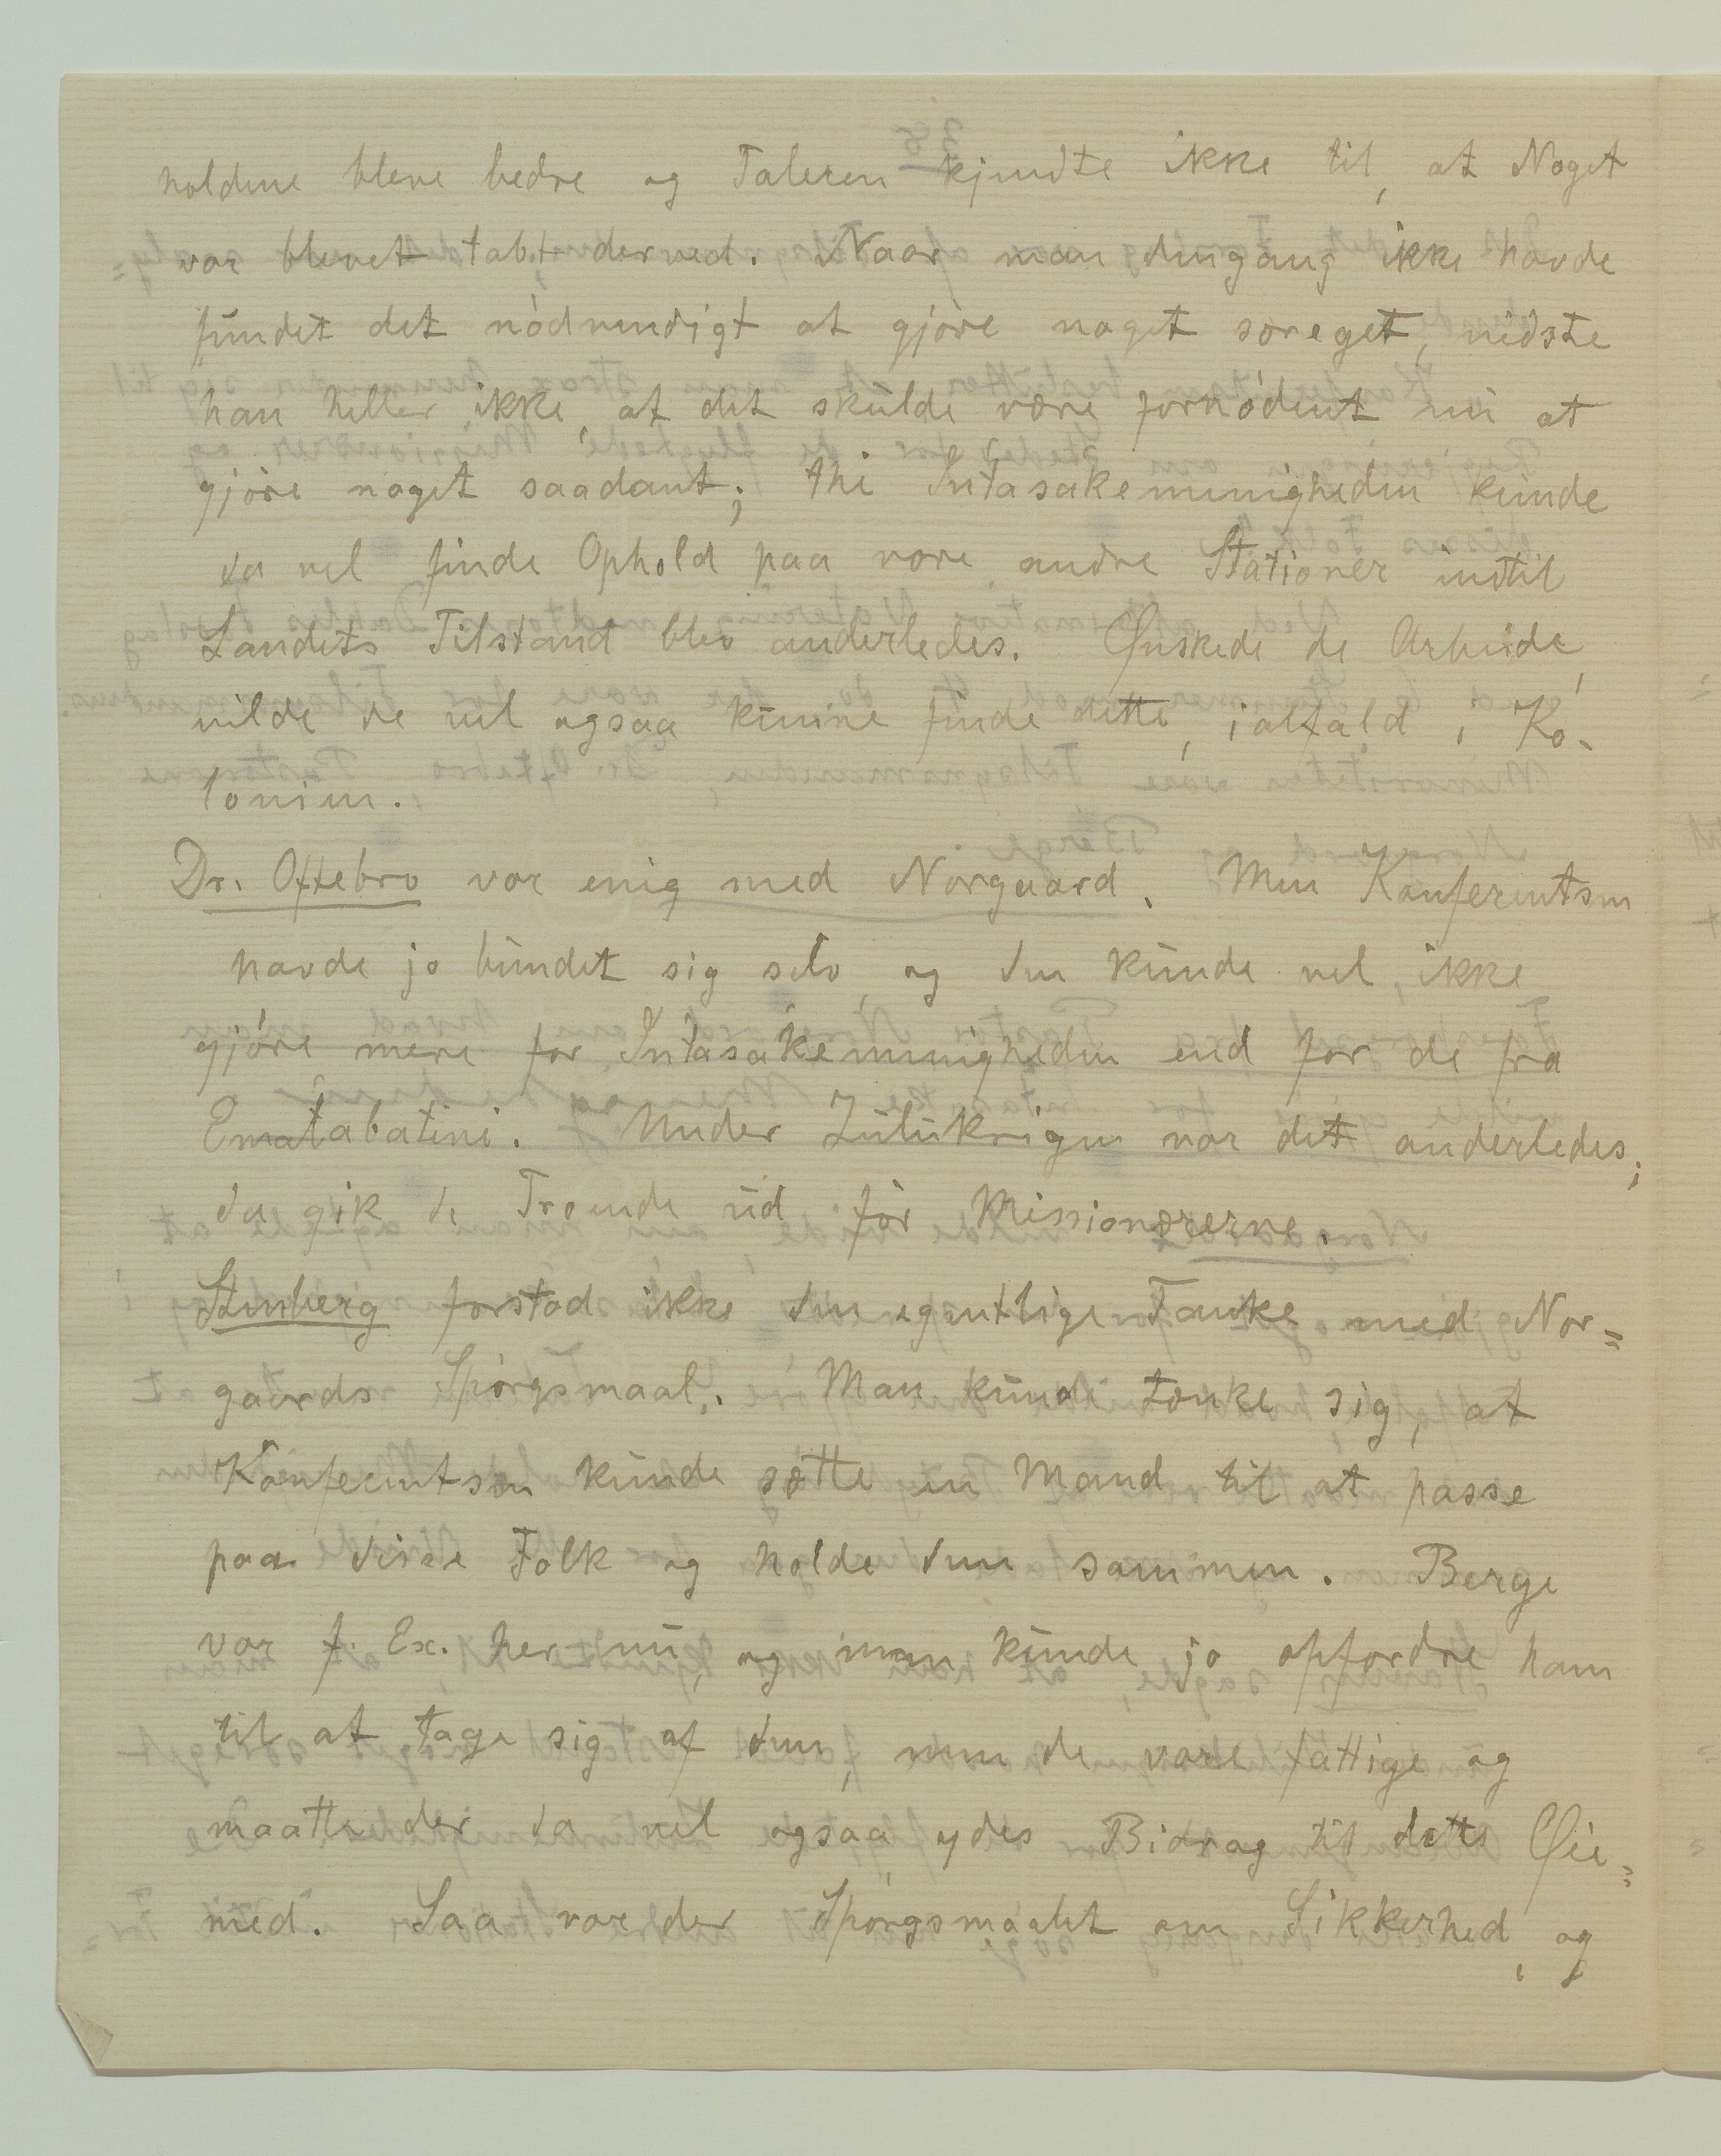 holdene bleve bedre og Taleren kjendte ikke til, at Noget
var blevet tabt derved. Naar man dengang ikke havde
fundet det nödvendigt at gjöre noget særeget, vidste
han heller ikke, at det skulde være fornödent nu at
gjöre noget saadant; thi Intasakemenigheden kunde
da vel finde Ophold paa vore andre Stationer indtil
Landets Tilstand blev anderledes. Ønskede de Arbeide,
vilde de vel ogsaa kunne finde dette, ialfald i Ko-
lonien.
Dr. Oftebro var enig med Norgaard. Men Konferentsen
havde jo bundet sig selv, og den kunde vel ikke
gjöre mere for Intasakemenigheden end for de fra
Ematabatini. Under Zulukrigen var det anderledes;
da gik de Troende ud för Missionærerne.
Stenberg forstod ikke den egentlige Tanke med Nor=
gaards Spörgsmaal. Man kunde tænke sig, at
Konferentsen kunde sætte en Mand til at passe
paa disse Folk og holde dem sammen. Berge
var f. Ex. her nu, og man kunde jo opfordre ham
til at tage sig af dem, men de vare fattige og
maatte der da vel ogsaa ydes Bidrag til dette Øie=
med. Saa var der Spörgsmaalet om Sikkerhed, og